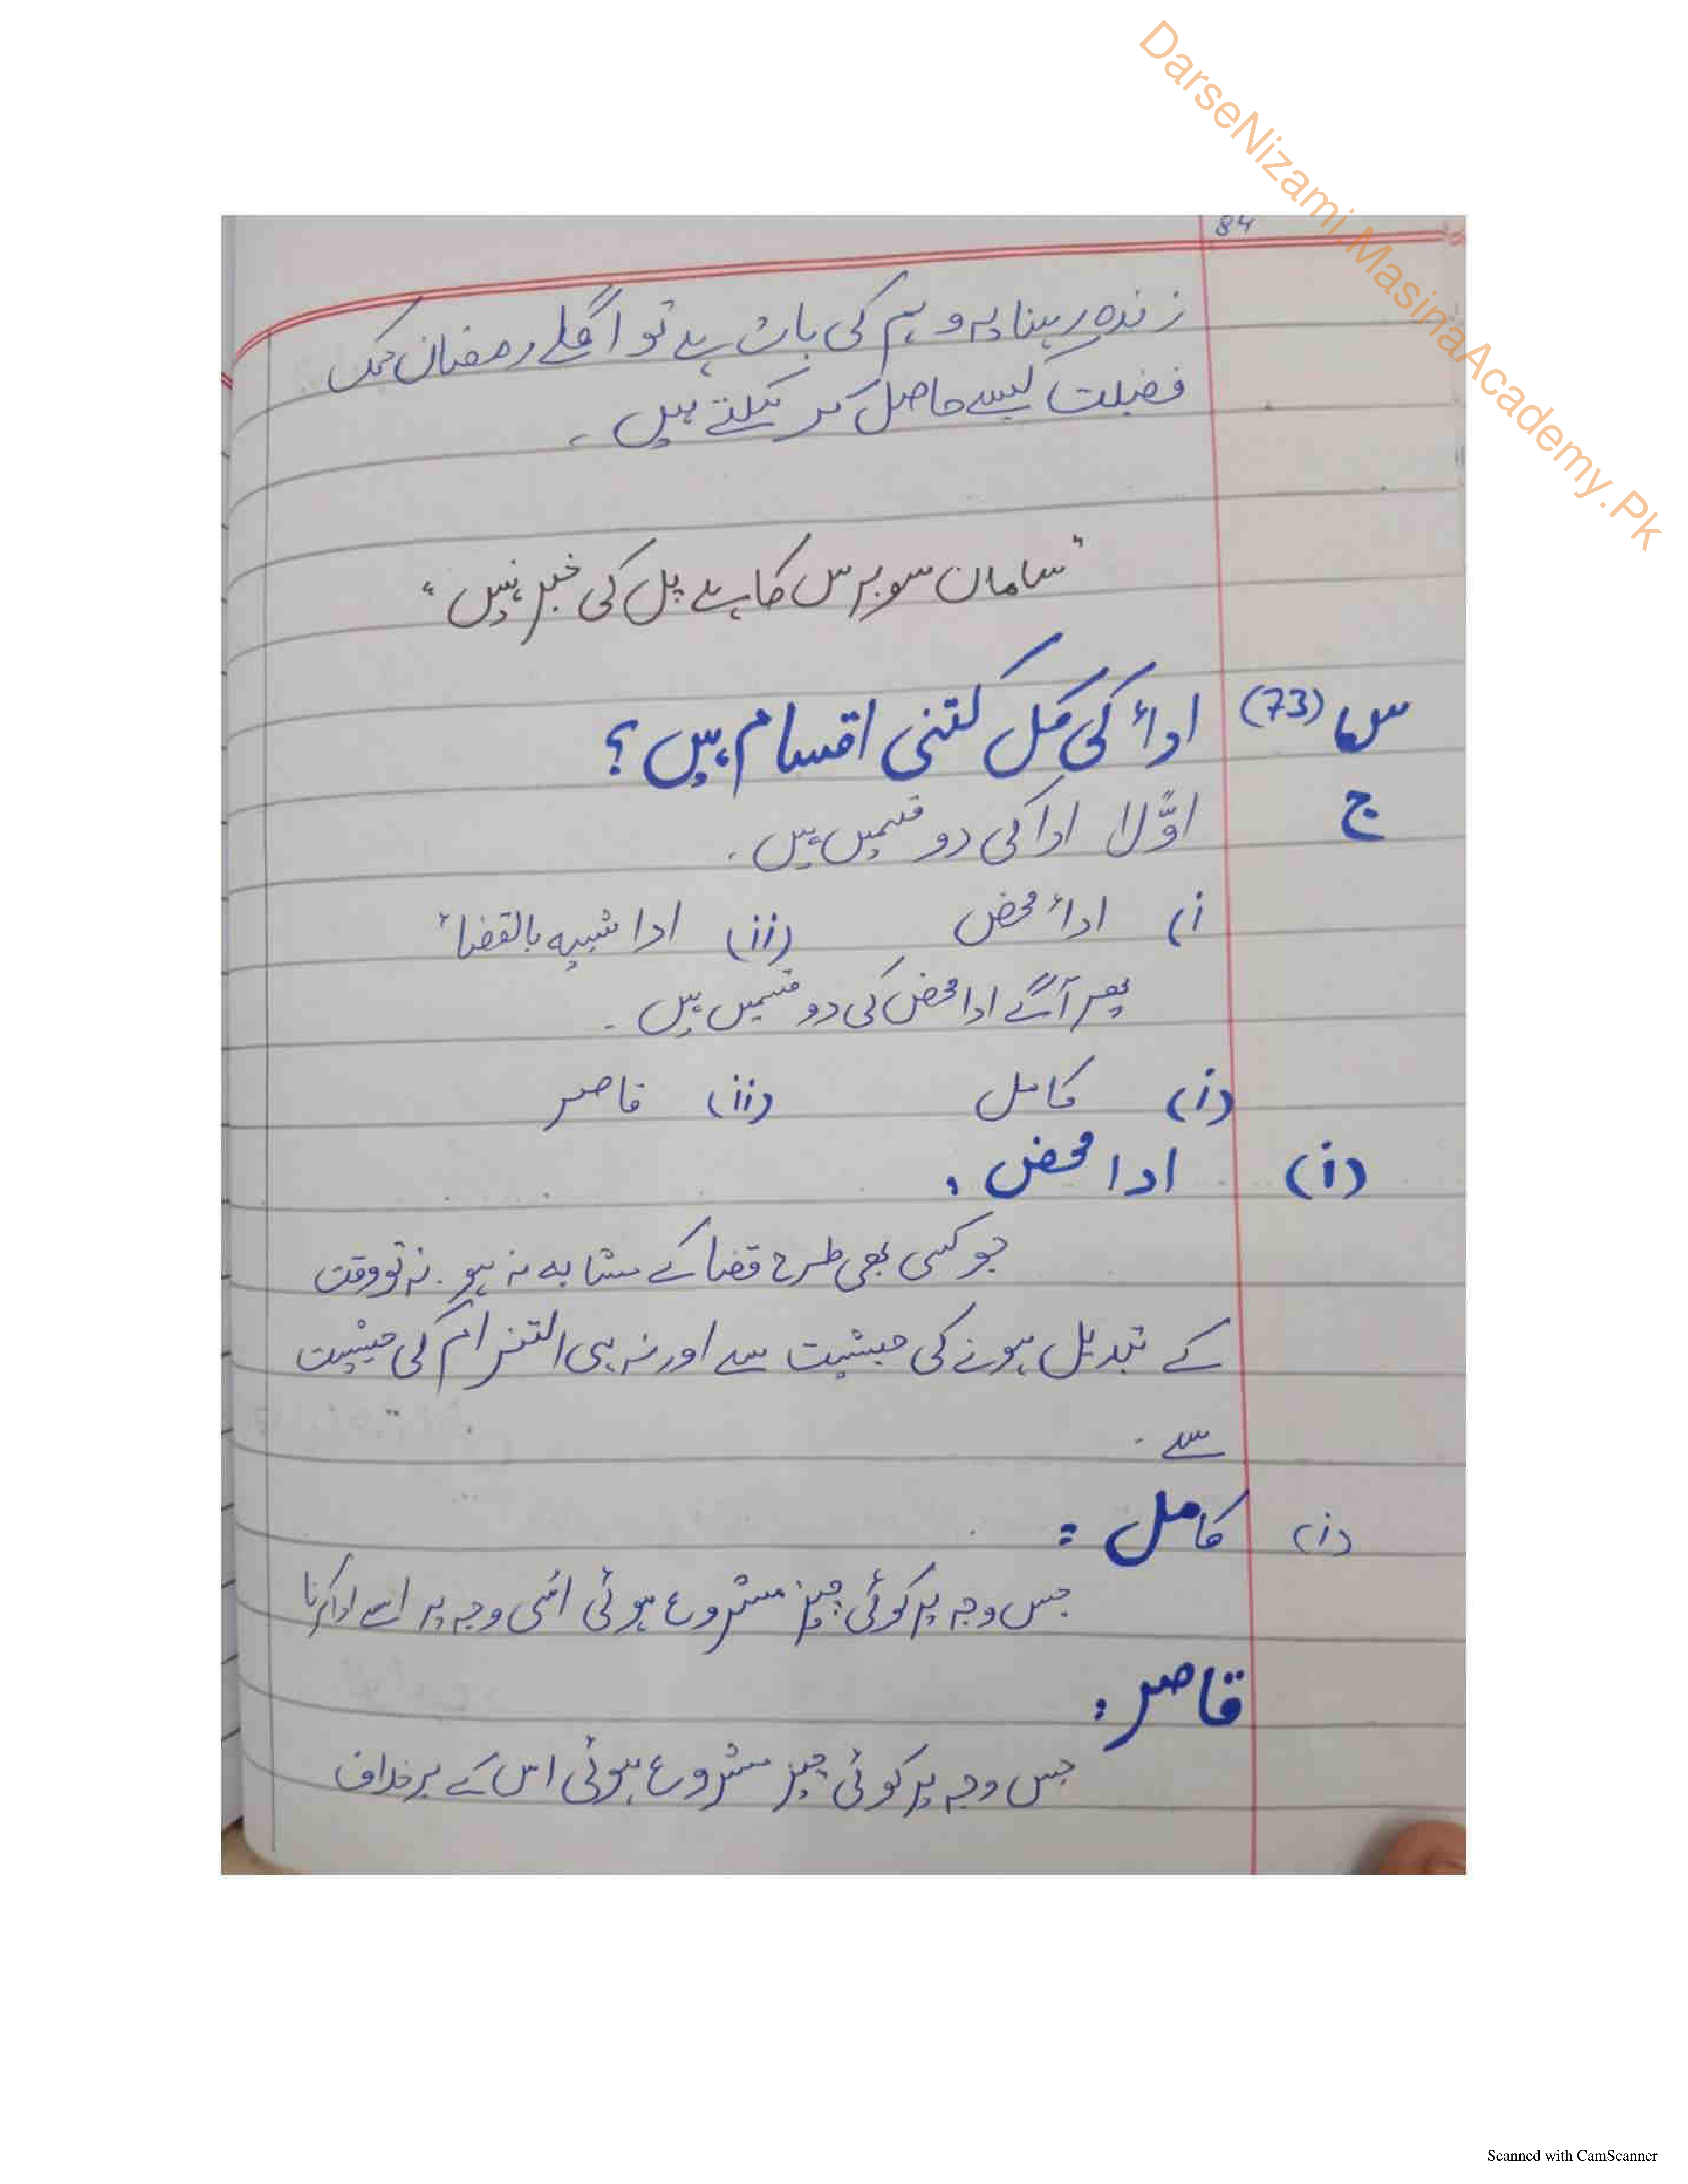 DarseNizami.MasinaAcademy.Pk
84
زندہ رہنا یہ وہم کی بات ہے تو اگلے رمضان تک
فضیلت کیسے حاصل کر سکتے ہیں۔
"سامان سو برس کا ہے پل کی خبر نہیں"
س (73) اداءً کی کل کتنی اقسام ہیں؟
ج اوّلاً ادا کی دو قسمیں ہیں۔
i) اداء محض (ii) ادا شبیہ بالقضاء
پھر آگے ادا محض کی دو قسمیں ہیں۔
(i) کامل (ii) قاصر
(i) ادا محض:
جو کسی بھی طرح قضا کے مشابہ نہ ہو۔ نہ تو وقت
کے تبدیل ہونے کی حیثیت سے اور نہ ہی التزام کی حیثیت
سے۔
(i) کامل:
جس وجہ پر کوئی چیز مشروع ہوئی اُسی وجہ پر اسے ادا کرنا
قاصر:
جس وجہ پر کوئی چیز مشروع ہوئی اس کے برخلاف
Scanned with CamScanner